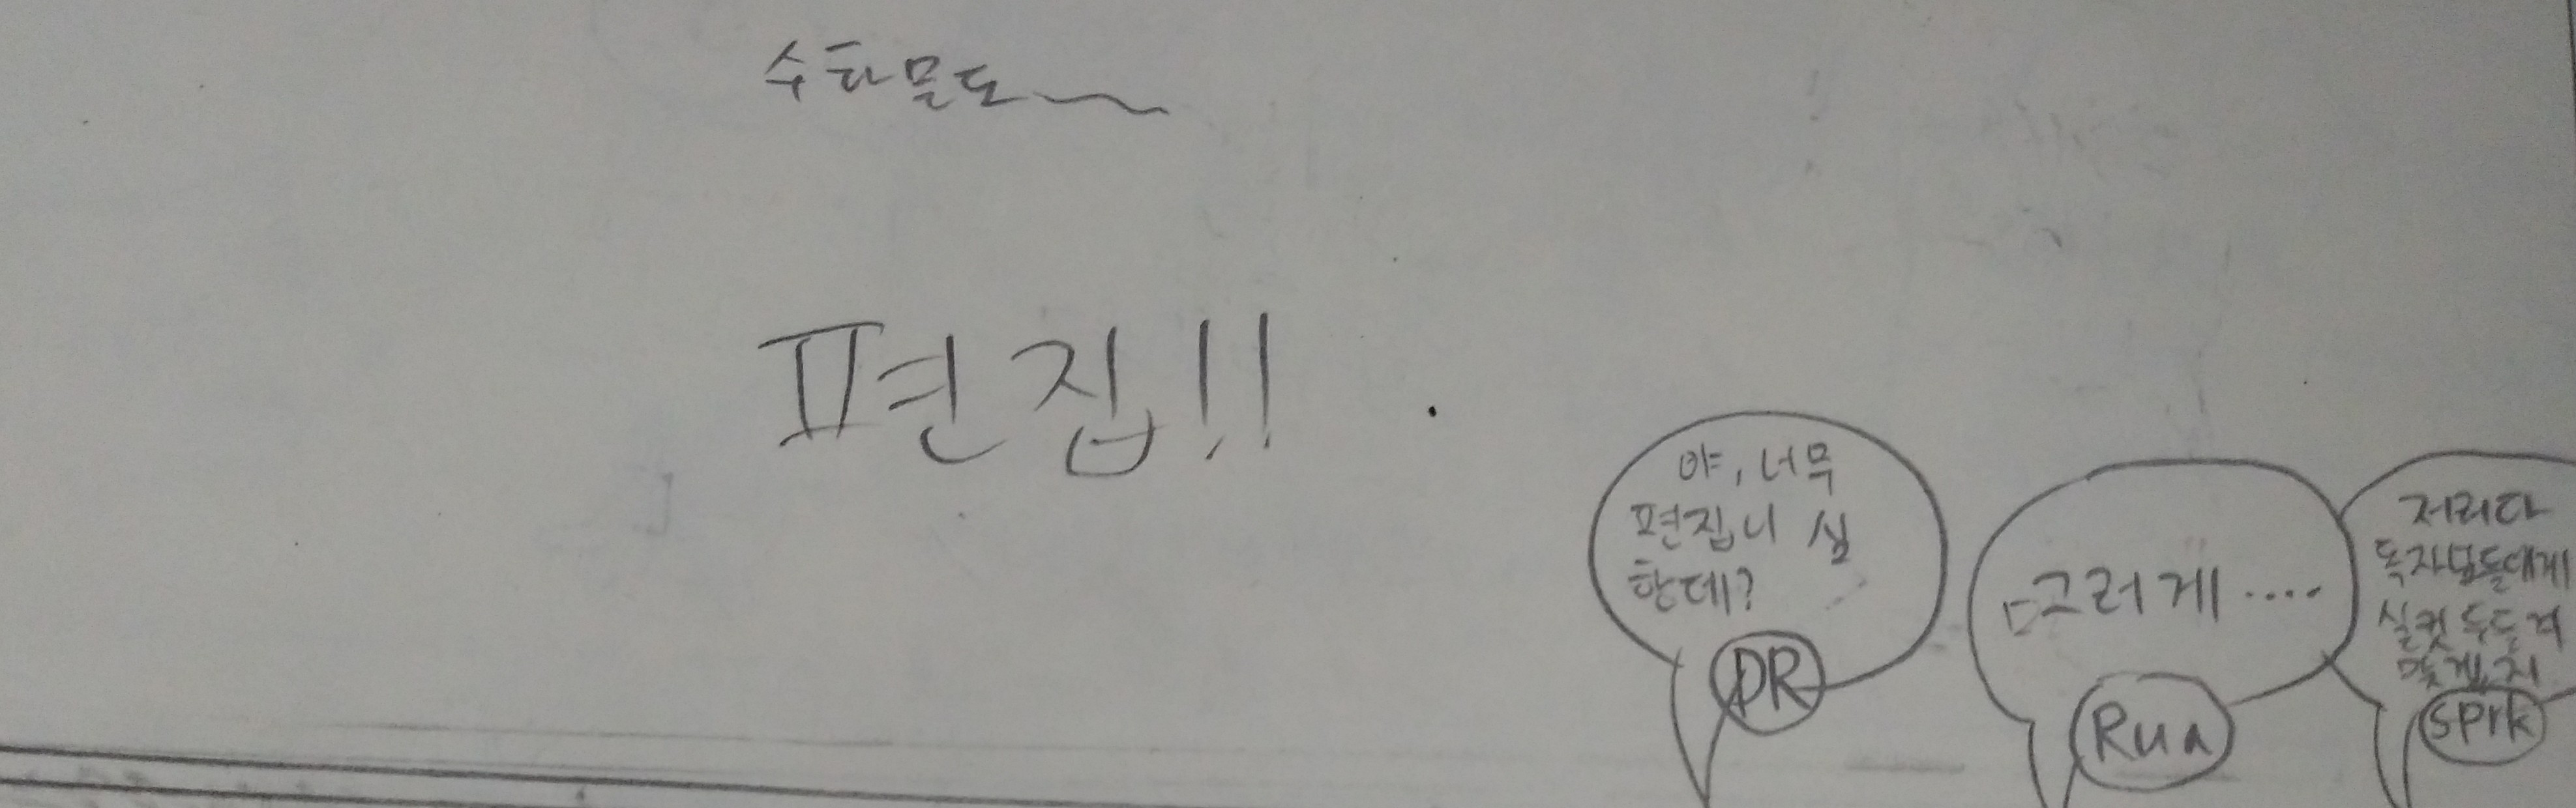 수하물도~
편집!!
야, 너무
편집니 심
한데?
DR
그러게....
Rua
저러다
독자님들에게
실컷 두들겨
맞겠지
sprk